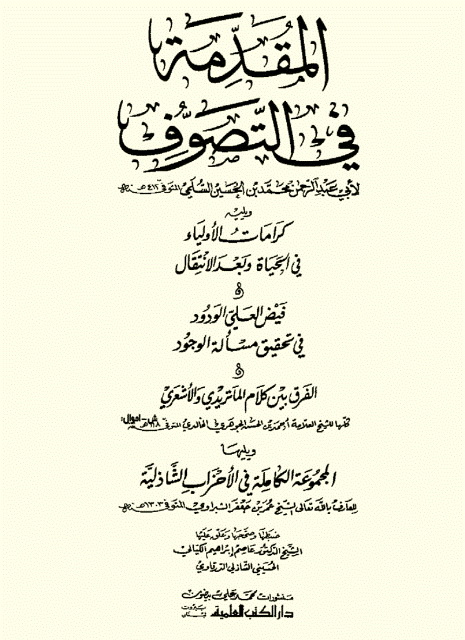 المقدِّمة
في التَّصوُّف
لأبي عبد الرحمن محمد بن الحسين السُّلَمي المتوفى ٤١٢ هـ
ويليه
كرامات الأولياء
في الحياة وبعد الانتقال
و
فيض العليّ الودود
في تحقيق مسألة الوجود
و
الفرق بين كلام الماتريدي والأشعري
كلها للشيخ العلامة أحمد بن الجوهري الخالدي المتوفى
ويليها
المجموعة الكاملة في الأحزاب الشَّاذليَّة
للعارف بالله تعالى الشيخ عمر بن جعفر الشبراوي المتوفى ١٣٠٣ هـ
ضبطها وصححها وعلق عليها
الشيخ الدكتور عاصم إبراهيم الكيالي
الحسيني الشاذلي الدرقاوي
منشورات محمد علي بيضون
دار الكتب العلمية